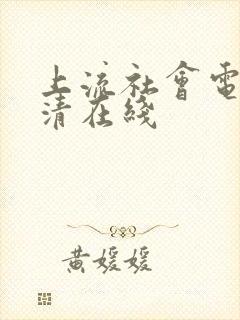 上流社會電
清在綫
黄媛媛